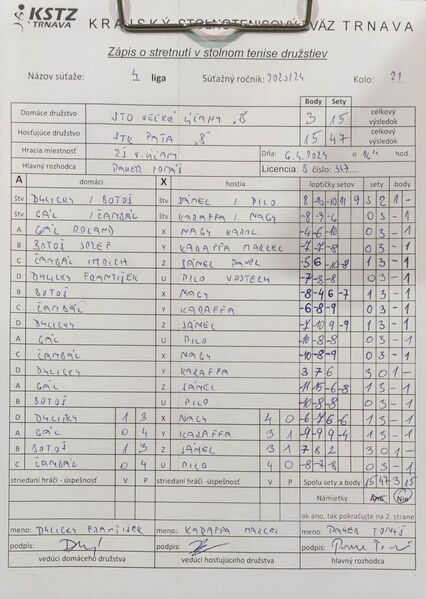 KSTZ TRNAVA KRAJSKÝ STOLNOTENISOVÝ ZVÄZ TRNAVA
Zápis o stretnutí v stolnom tenise družstiev
Názov súťaže: 5. liga Súťažný ročník: 2023/24 Kolo: 21
Body Sety
Domáce družstvo STO VEĽKÉ ÚĽANY "B" 3 15 celkový výsledok
Hosťujúce družstvo STK PATA "B" 15 47 celkový výsledok
Hracia miestnosť ZŠ V. ÚĽANY Dňa: 6.4.2024 o hod.
Hlavný rozhodca PAVER TOMÁŠ Licencia: B číslo:
A domáci X hostia loptičky setov sety body
štv DYLICKY / BOTOŠ štv SÁNEL / PILO 8 -10 -10 11 9 3 2 1 -
štv GÁL / ČAMBÁL štv KARAFFA / NAGY -8 -9 -6 0 3 - 1
A GÁL ROLAND X NAGY KAROL -4 -6 -10 0 3 - 1
B BOTOŠ JOZEF Y KARAFFA MARCEL -7 -7 -8 0 3 - 1
C ČAMBÁL IMRICH Z SÁNEL PAVOL -5 6 -10 -8 1 3 - 1
D DYLICKY FRANTIŠEK U PILO VOJTECH -7 -8 -8 0 3 - 1
B BOTOŠ X NAGY -8 -4 6 -7 1 3 - 1
C ČAMBÁL Y KARAFFA -6 -8 -9 0 3 - 1
D DYLICKY Z SÁNEL -7 10 -9 -9 1 3 - 1
A GÁL U PILO -10 -8 -8 0 3 - 1
C ČAMBÁL X NAGY -10 -8 -9 0 3 - 1
D DYLICKY Y KARAFFA 3 7 6 3 0 1 -
A GÁL Z SÁNEL -11 15 -6 -8 1 3 - 1
B BOTOŠ U PILO -10 -8 -8 0 3 - 1
D DYLICKY 1 3 X NAGY 4 0 -6 7 -6 -6 1 3 - 1
A GÁL 0 4 Y KARAFFA 3 1 -9 9 -9 -4 1 3 - 1
B BOTOŠ 1 3 Z SÁNEL 3 1 7 8 2 3 0 1 -
C ČAMBÁL 0 4 U PILO 4 0 -8 -7 -8 0 3 - 1
striedaní hráči - úspešnosť V P striedaní hráči - úspešnosť V P Spolu sety a body 15 47 3 15
Námietky Áno Nie
ak áno, tak pokračujte na 2. strane
meno: DYLICKY FRANTIŠEK meno: KARAFFA MARCEL meno: PAVER TOMÁŠ
podpis: podpis: podpis:
vedúci domáceho družstva vedúci hosťujúceho družstva hlavný rozhodca